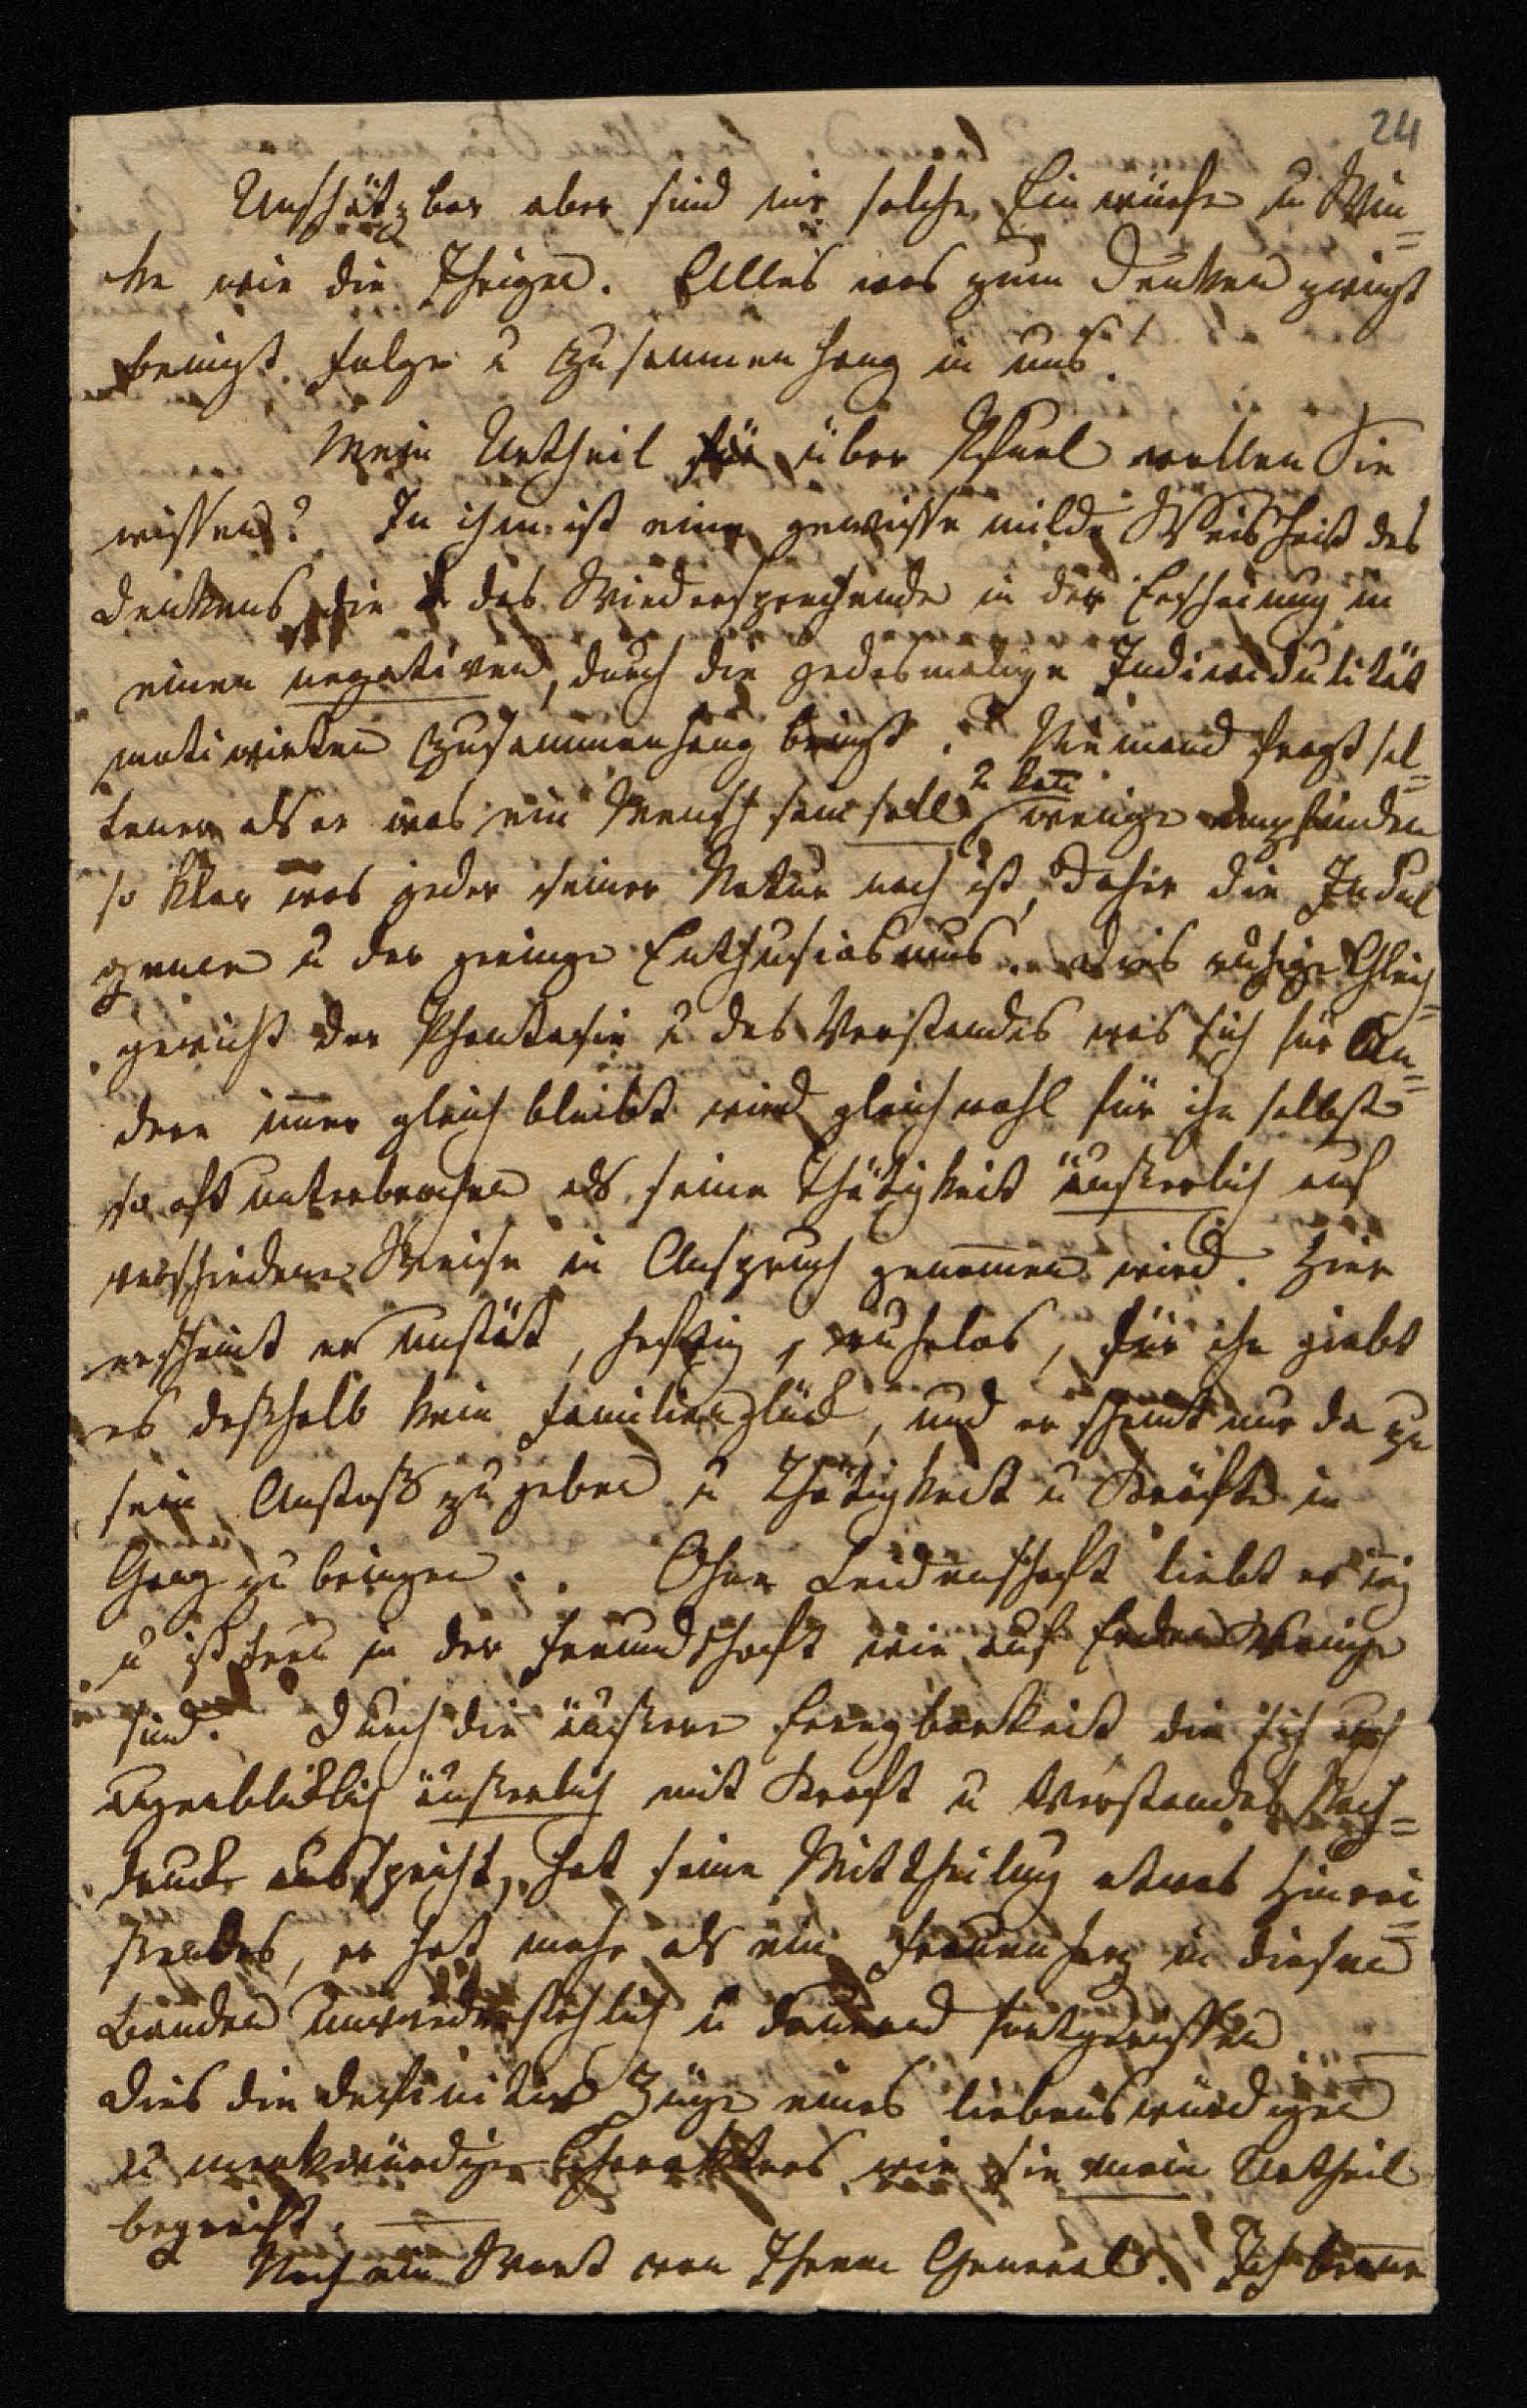 24
Unschätzbar aber sind mir solche Einwürfe u Win=
ke wie die Ihrigen. Alles was zum Denken zwingt
bringt Folge u Zusammenhang in uns!
Mein Urtheil für über Pfuel wollen Sie
wissen? In ihm ist eine gewisse milde Weisheit des
Denkens, die das Wiedersprechende in der Erscheinung in
einen negativen, durch die jedesmalige Individulität
motivirten Zusammenhang bringt. Niemand fragt sel=
tener als er was ein Mensch sein soll u kan wenige empfinden
so klar was jeder seiner Natur nach ist, daher die Indul
genzen u der geringe Enthusiasmus. Dies ruhige Gleich=
gewicht der Phantasie u des Verstandes was sich für An=
dere immer gleich bleibt wird gleichwohl für ihn selbst
so oft unterbrochen als seine Thätigkeit äusserlich auf
verschiedene Weise in Anspruch genommen wird. Hier
erscheint er unstät, heftig, ruhelos, für ihn giebt
es deshalb kein Familienglück, und er scheint nur da zu
sein Anstoß zu geben u Thätigkeit u Kräfte in
Gang zu bringen. Ohne Leidenschaft liebt er
u ist treu in der Freundschaft wie auf Erden Wenige
sind. Durch die äussere Erregbarkeit die sich auch
augenblicklich äusserlich mit Kraft u Verstandes Nach=
druck ausspricht, hat seine Mittheilung etwas Hinrei=
ssendes, er hat mehr als ein Frauenherz in diesen
Banden unwiderstehlich u dauernd fortgerissen
Dies die definitive Züge eines liebenswürdigen
u merkwürdigen Charakters wie sie mein Urtheil
begreift. —
Noch ein Wort von Ihrem General. Ich kenne